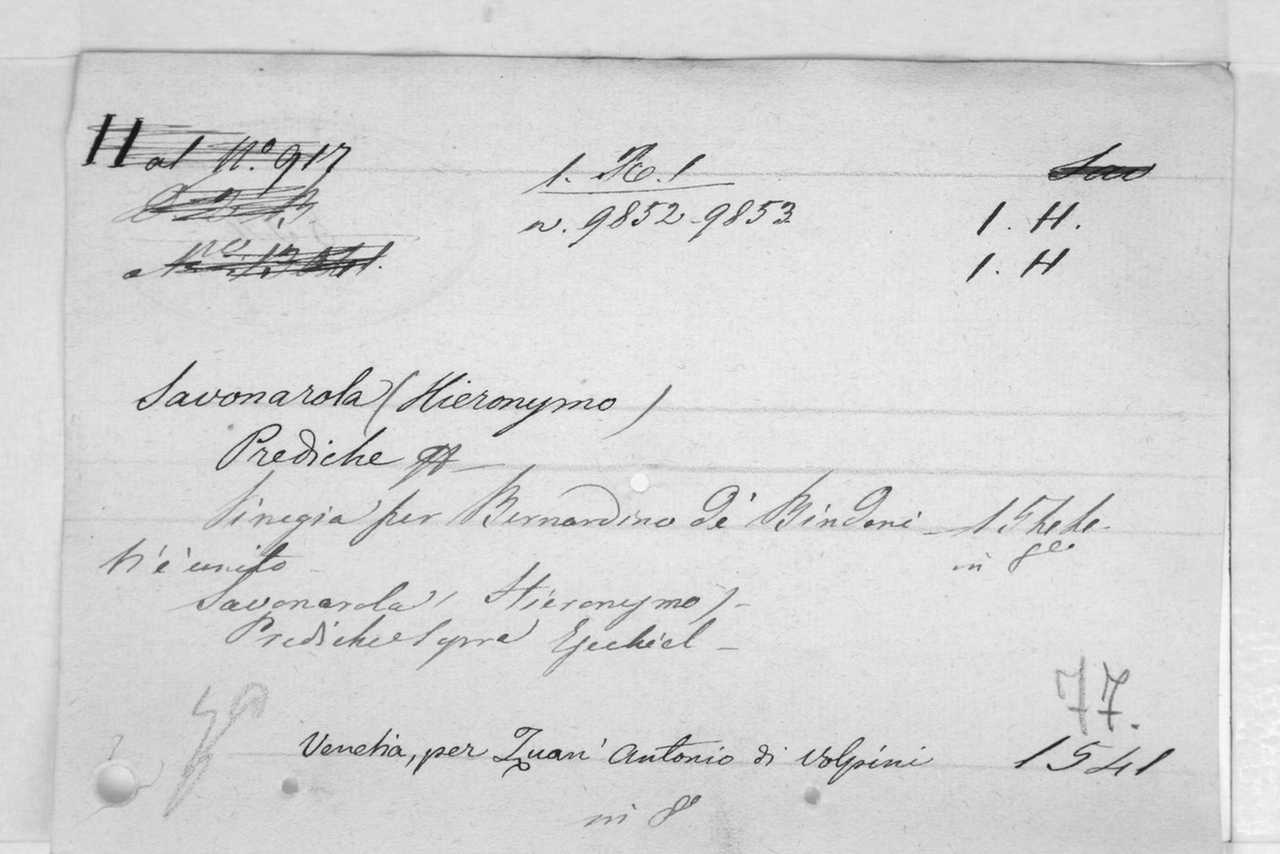 H al N.º 917
1. R. 1
n. 9852-9853
Sav
1. H.
1. H
Savonarola (Hieronymo)
Prediche
Vinegia per Bernardino de' Bindoni - 1544.
in 8º
V'è unito
Savonarola, Hieronymo) -
Prediche sopra Ezechiel -
77.
Venetia, per Zuan' Antonio di Volpini 1541
in 8º